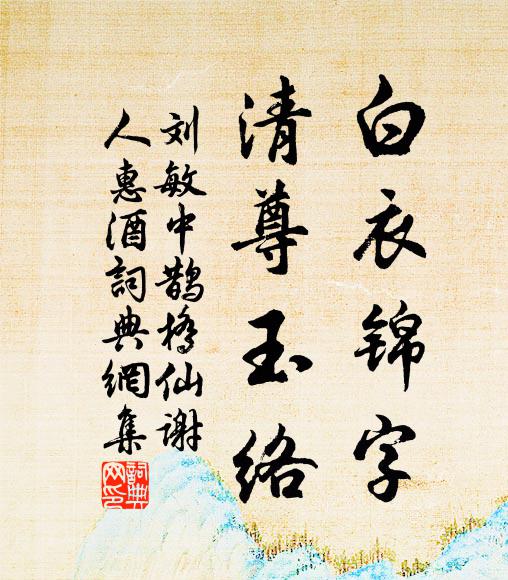 白衣锦字
清尊玉络
刘敏中鹊桥仙谢
人惠酒詞典網集
詞典网印